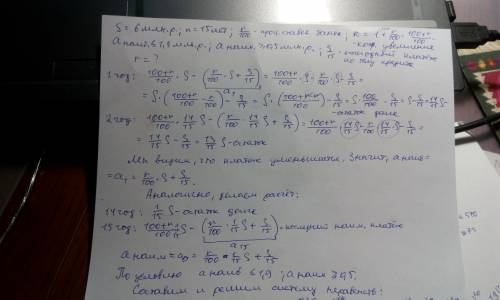 S = 6 млн.р., n = 15 лет; r/100 - проц. ставка банка; k = 1 + r/100 = 100+r/100 -
коэф. увеличения
a наиб. ≤ 1,9 млн.р.; a наим. ≥ 0,5 млн.р.; S/15 -
r = ?
1 год: 100+r/100 · S - (r/100 · S + S/15) = 100+r/100 · S - r/100 · S - S/15 =
a₁
= S · (100+r/100 - r/100) - S/15 = S · (100+r-r/100) - S/15 = S · 100/100 - S/15 = S - S/15 = 14/15 S -
остаток долга
2 год: 100+r/100 · 14/15 S - (r/100 · 14/15 S + S/15) = 100+r/100 · 14/15 S - r/100 · 14/15 S - S/15 =
= 14/15 S - S/15 = 13/15 S - остаток
Мы видим, что платеж уменьшается. Значит, a наиб =
= a₁ = r/100 · S + S/15.
Аналогично, делаем расчёт:
14 год: 1/15 S - остаток долга
15 год: 100+r/100 · 1/15 S - (r/100 · 1/15 S + S/15) - последний наим. платеж
a₁₅
a наим = a₁₅ = r/100 · 1/15 S + S/15
По условию a наиб ≤ 1,9; a наим ≥ 0,5.
Составим и решим систему неравенств: